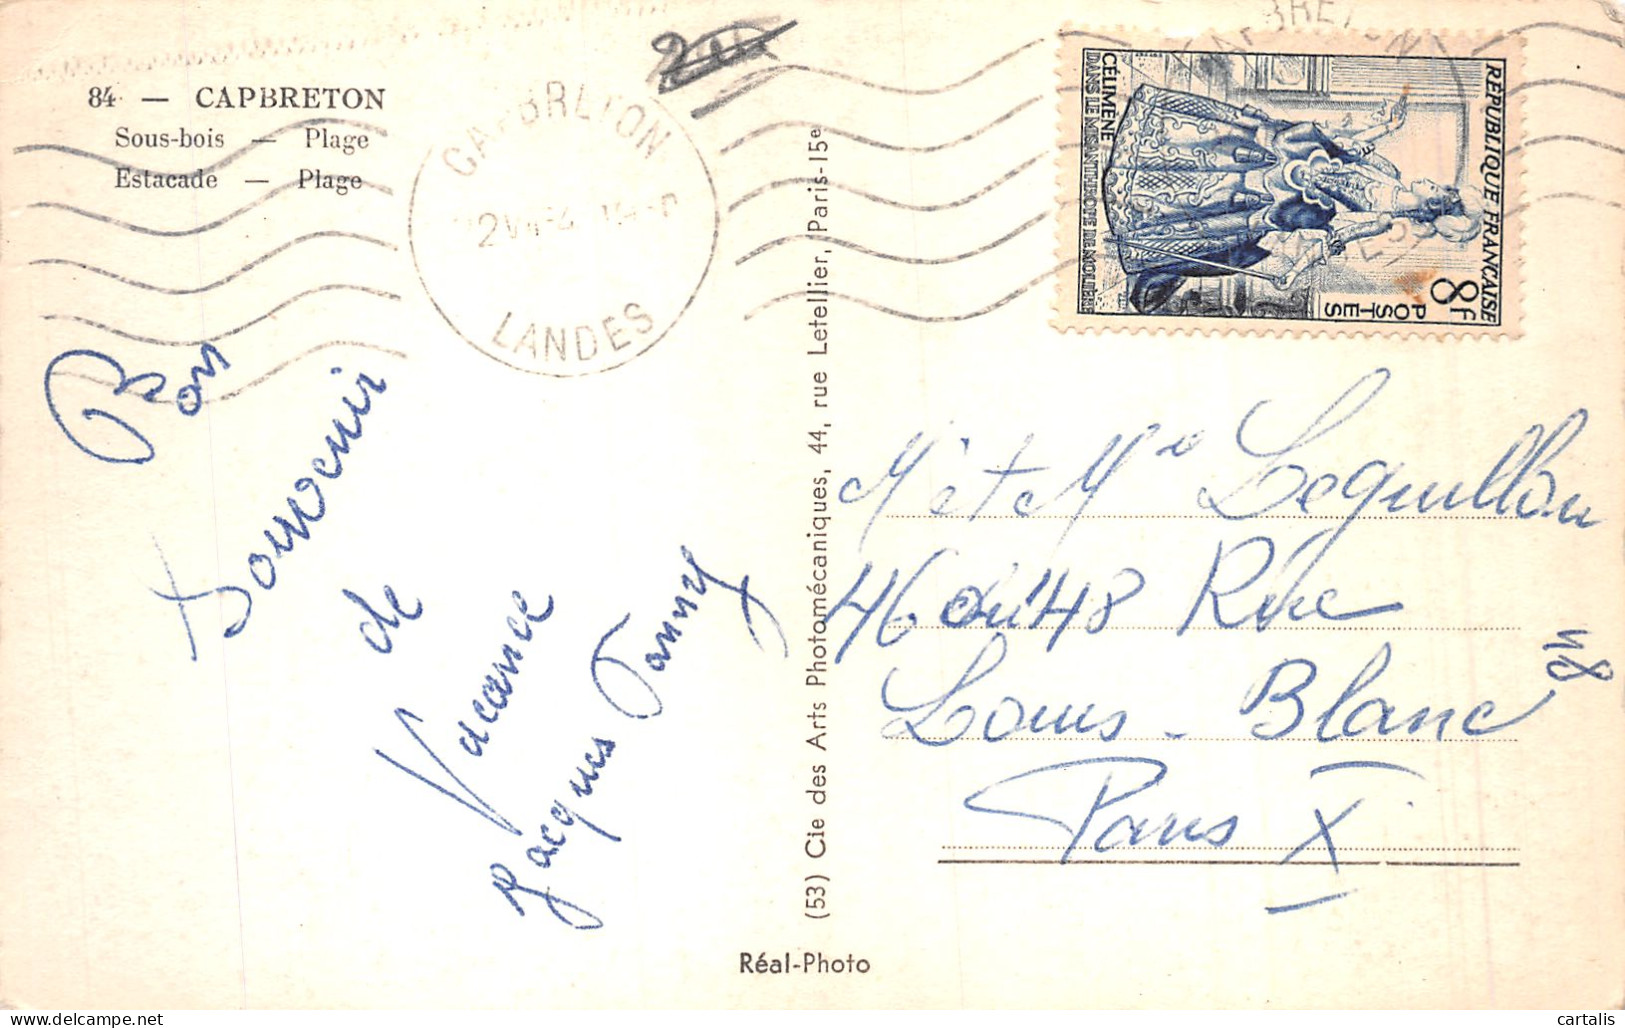 84 — CAPBRETON
Sous-bois — Plage
Estacade — Plage
CAPBRETON
LANDES
Bon
Souvenir
de
Vacance
Jacques Fanny
(53) Cie des Arts Photomécaniques, 44, rue Letellier, Paris-15e
Réal-Photo
RÉPUBLIQUE FRANÇAISE
8F
POSTES
CÉLIMÈNE
DANS LE MISANTHROPE DE MOLIÈRE
Mr et Me Leguillou
46 ou 48 Rue
Louis-Blanc
48
Paris X
cartalis